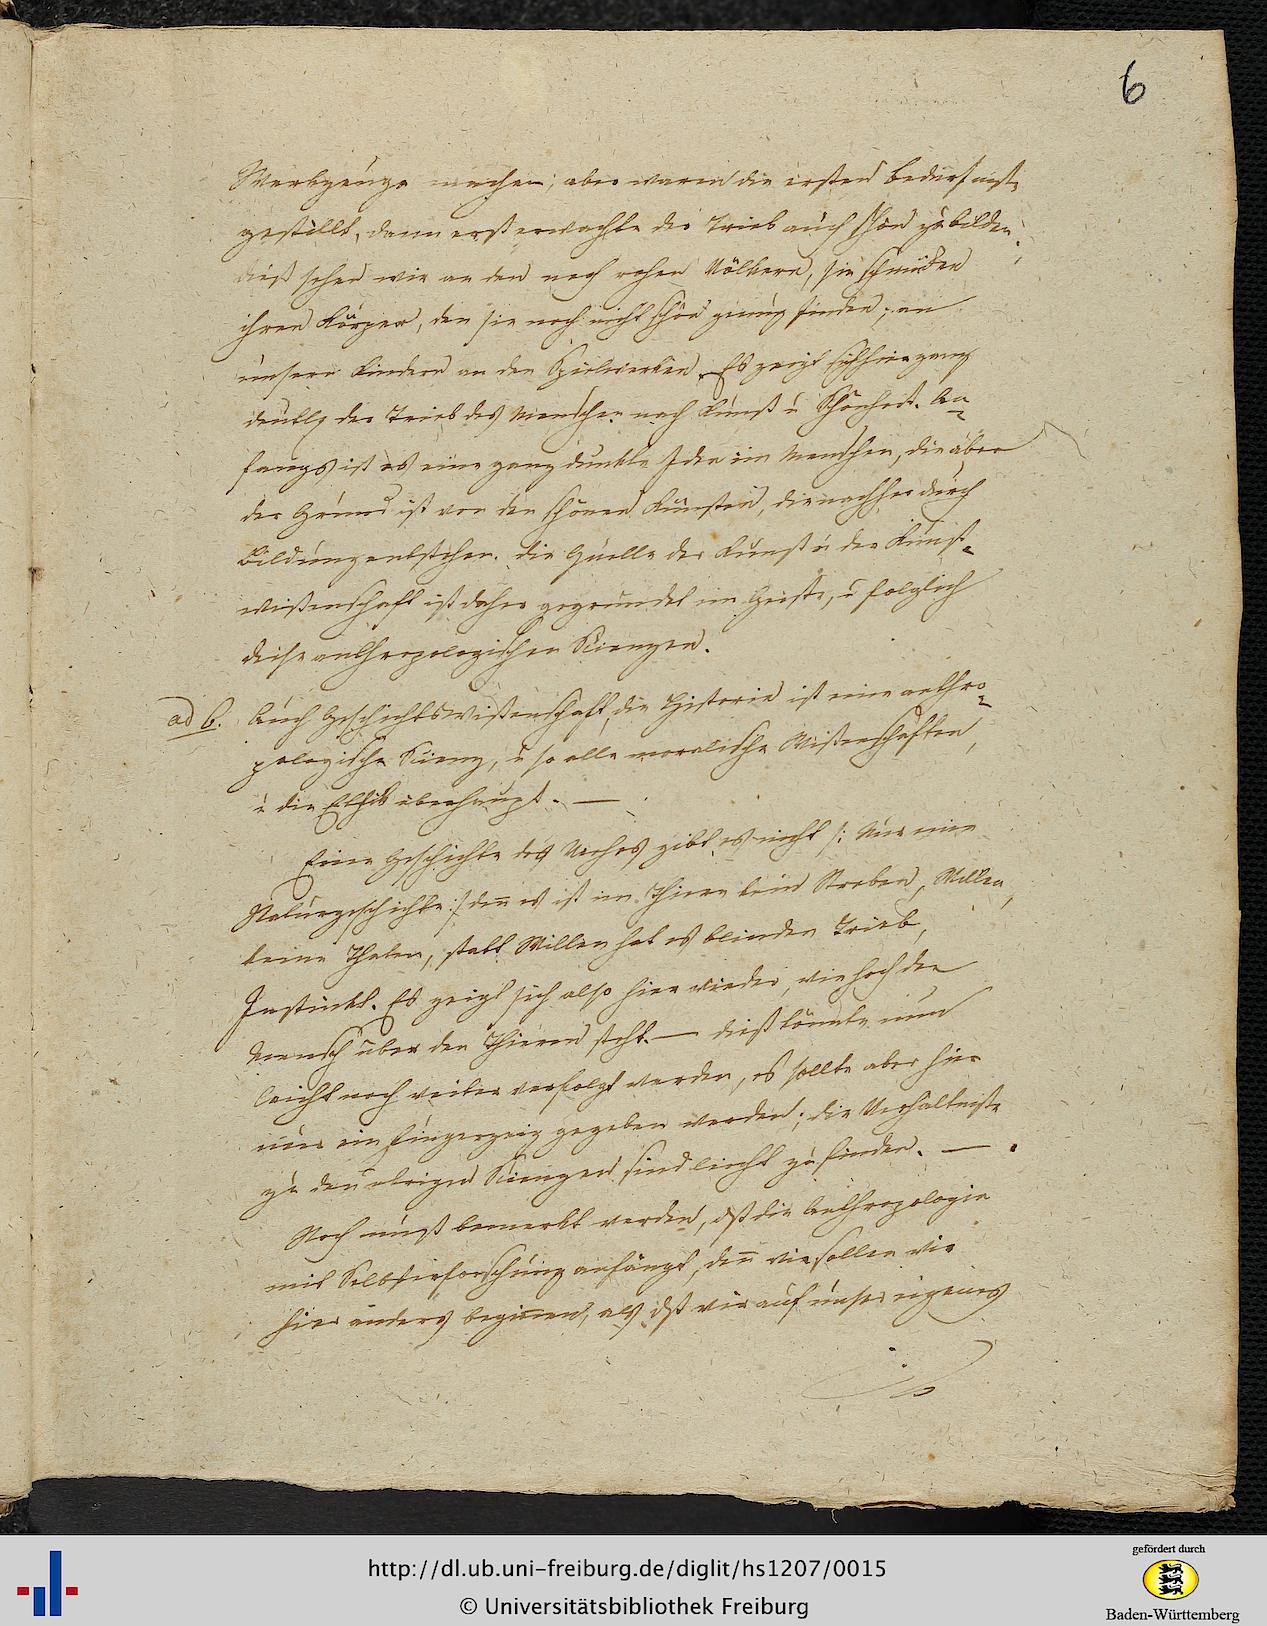 6
Werkzeuge machen; aber waren die ersten Bedürfniße
gestillt, dann erst erwachte der Trieb auch schön zu bilden,
dieß sehen wir an den noch rohen Völkern, sie schmüken
ihren Körper, den sie noch nicht schön genug finden; an
unsern Kindern an den Spielwerken. Es zeigt sich hier ganz
deutlich der Trieb des Menschen nach Kunst u Schönheit. An=
fangs ist es eine ganz dunkle Idee im Menschen, die aber
der Grund ist von den schönen Künsten, die nachher durch
Bildung entstehen. die Quelle der Kunst u der Kunst=
wißenschaft ist daher gegründet im Geiste, u folglich
diese anthropologischen Scienzen.
ad 6. Auch Geschichtswißenschaft, die Historie ist eine anthro=
pologische Scienz, u so alle moralische Wißenschaften,
u die Ethik überhaupt. —
Eine Geschichte des Viehes gibt es nicht /: Nur eine
Naturgeschichte :/ den es ist im Thiere kein Streben, Willen,
keine Thaten, statt Willen hat es blinden Trieb,
Instinkt. Es zeigt sich also hier wieder, wie hoch der
Mensch über den Thieren steht. — dieß könnte nun
leicht noch weiter verfolgt werden, es sollte aber hier
nur ein Fingerzeig gegeben werden; die Verhältniße
zu den übrigen Scienzen sind leicht zu finden. —
Noch muß bemerkt werden, dß die Anthropologie
mit Selbsterforschung anfängt, den wie sollen wir
hier anders beginnen, als dß wir auf unser eigenes
http://dl.ub.uni-freiburg.de/diglit/hs1207/0015
© Universitätsbibliothek Freiburg
gefördert durch
Baden-Württemberg